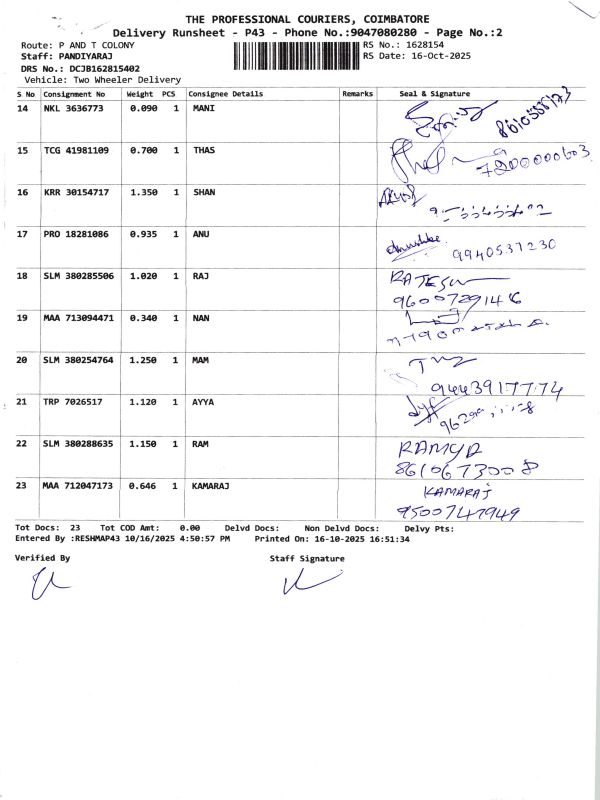 THE PROFESSIONAL COURIERS, COIMBATORE
Delivery Runsheet - P43 - Phone No.:9047080280 - Page No.:2
Route: P AND T COLONY RS No.: 1628154
Staff: PANDIYARAJ RS Date: 16-Oct-2025
DRS No.: DCJB162815402
Vehicle: Two Wheeler Delivery
S No Consignment No Weight PCS Consignee Details Remarks Seal & Signature
14 NKL 3636773 0.090 1 MANI
15 TCG 41981109 0.700 1 THAS
7200000603
16 KRR 30154717 1.350 1 SHAN
17 PRO 18281086 0.935 1 ANU
9940531230
18 SLM 380285506 1.020 1 RAJ
9600729146
19 MAA 713094471 0.340 1 NAN
20 SLM 380254764 1.250 1 MAM
9443917774
21 TRP 7026517 1.120 1 AYYA
22 SLM 380288635 1.150 1 RAM RAMYA
8610673008
23 MAA 712047173 0.646 1 KAMARAJ KAMARAJ
9500747949
Tot Docs: 23 Tot COD Amt: 0.00 Delvd Docs: Non Delvd Docs: Delvy Pts:
Entered By :RESHMAP43 10/16/2025 4:50:57 PM Printed On: 16-10-2025 16:51:34
Verified By Staff Signature